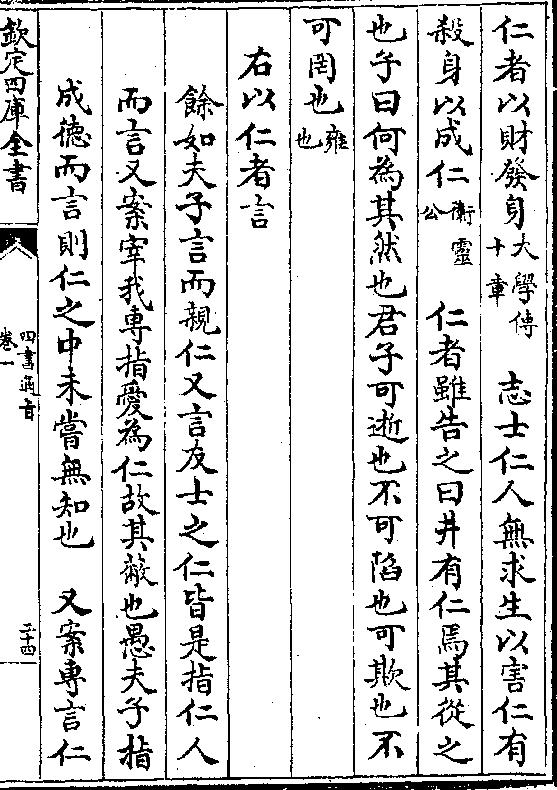 仁者以財發身大學傳十章　志士仁人無求生以害仁有
殺身以成仁衛靈公　仁者雖告之曰井有仁焉其從之
也子曰何為其然也君子可逝也不可陷也可欺也不
可罔也雍也
右以仁者言
餘如夫子言而親仁又言友士之仁皆是指仁人
而言又案宰我專指愛為仁故其蔽也愚夫子指
成德而言則仁之中未嘗無知也　又案專言仁
欽定四庫全書
四書通旨
卷一
二十四